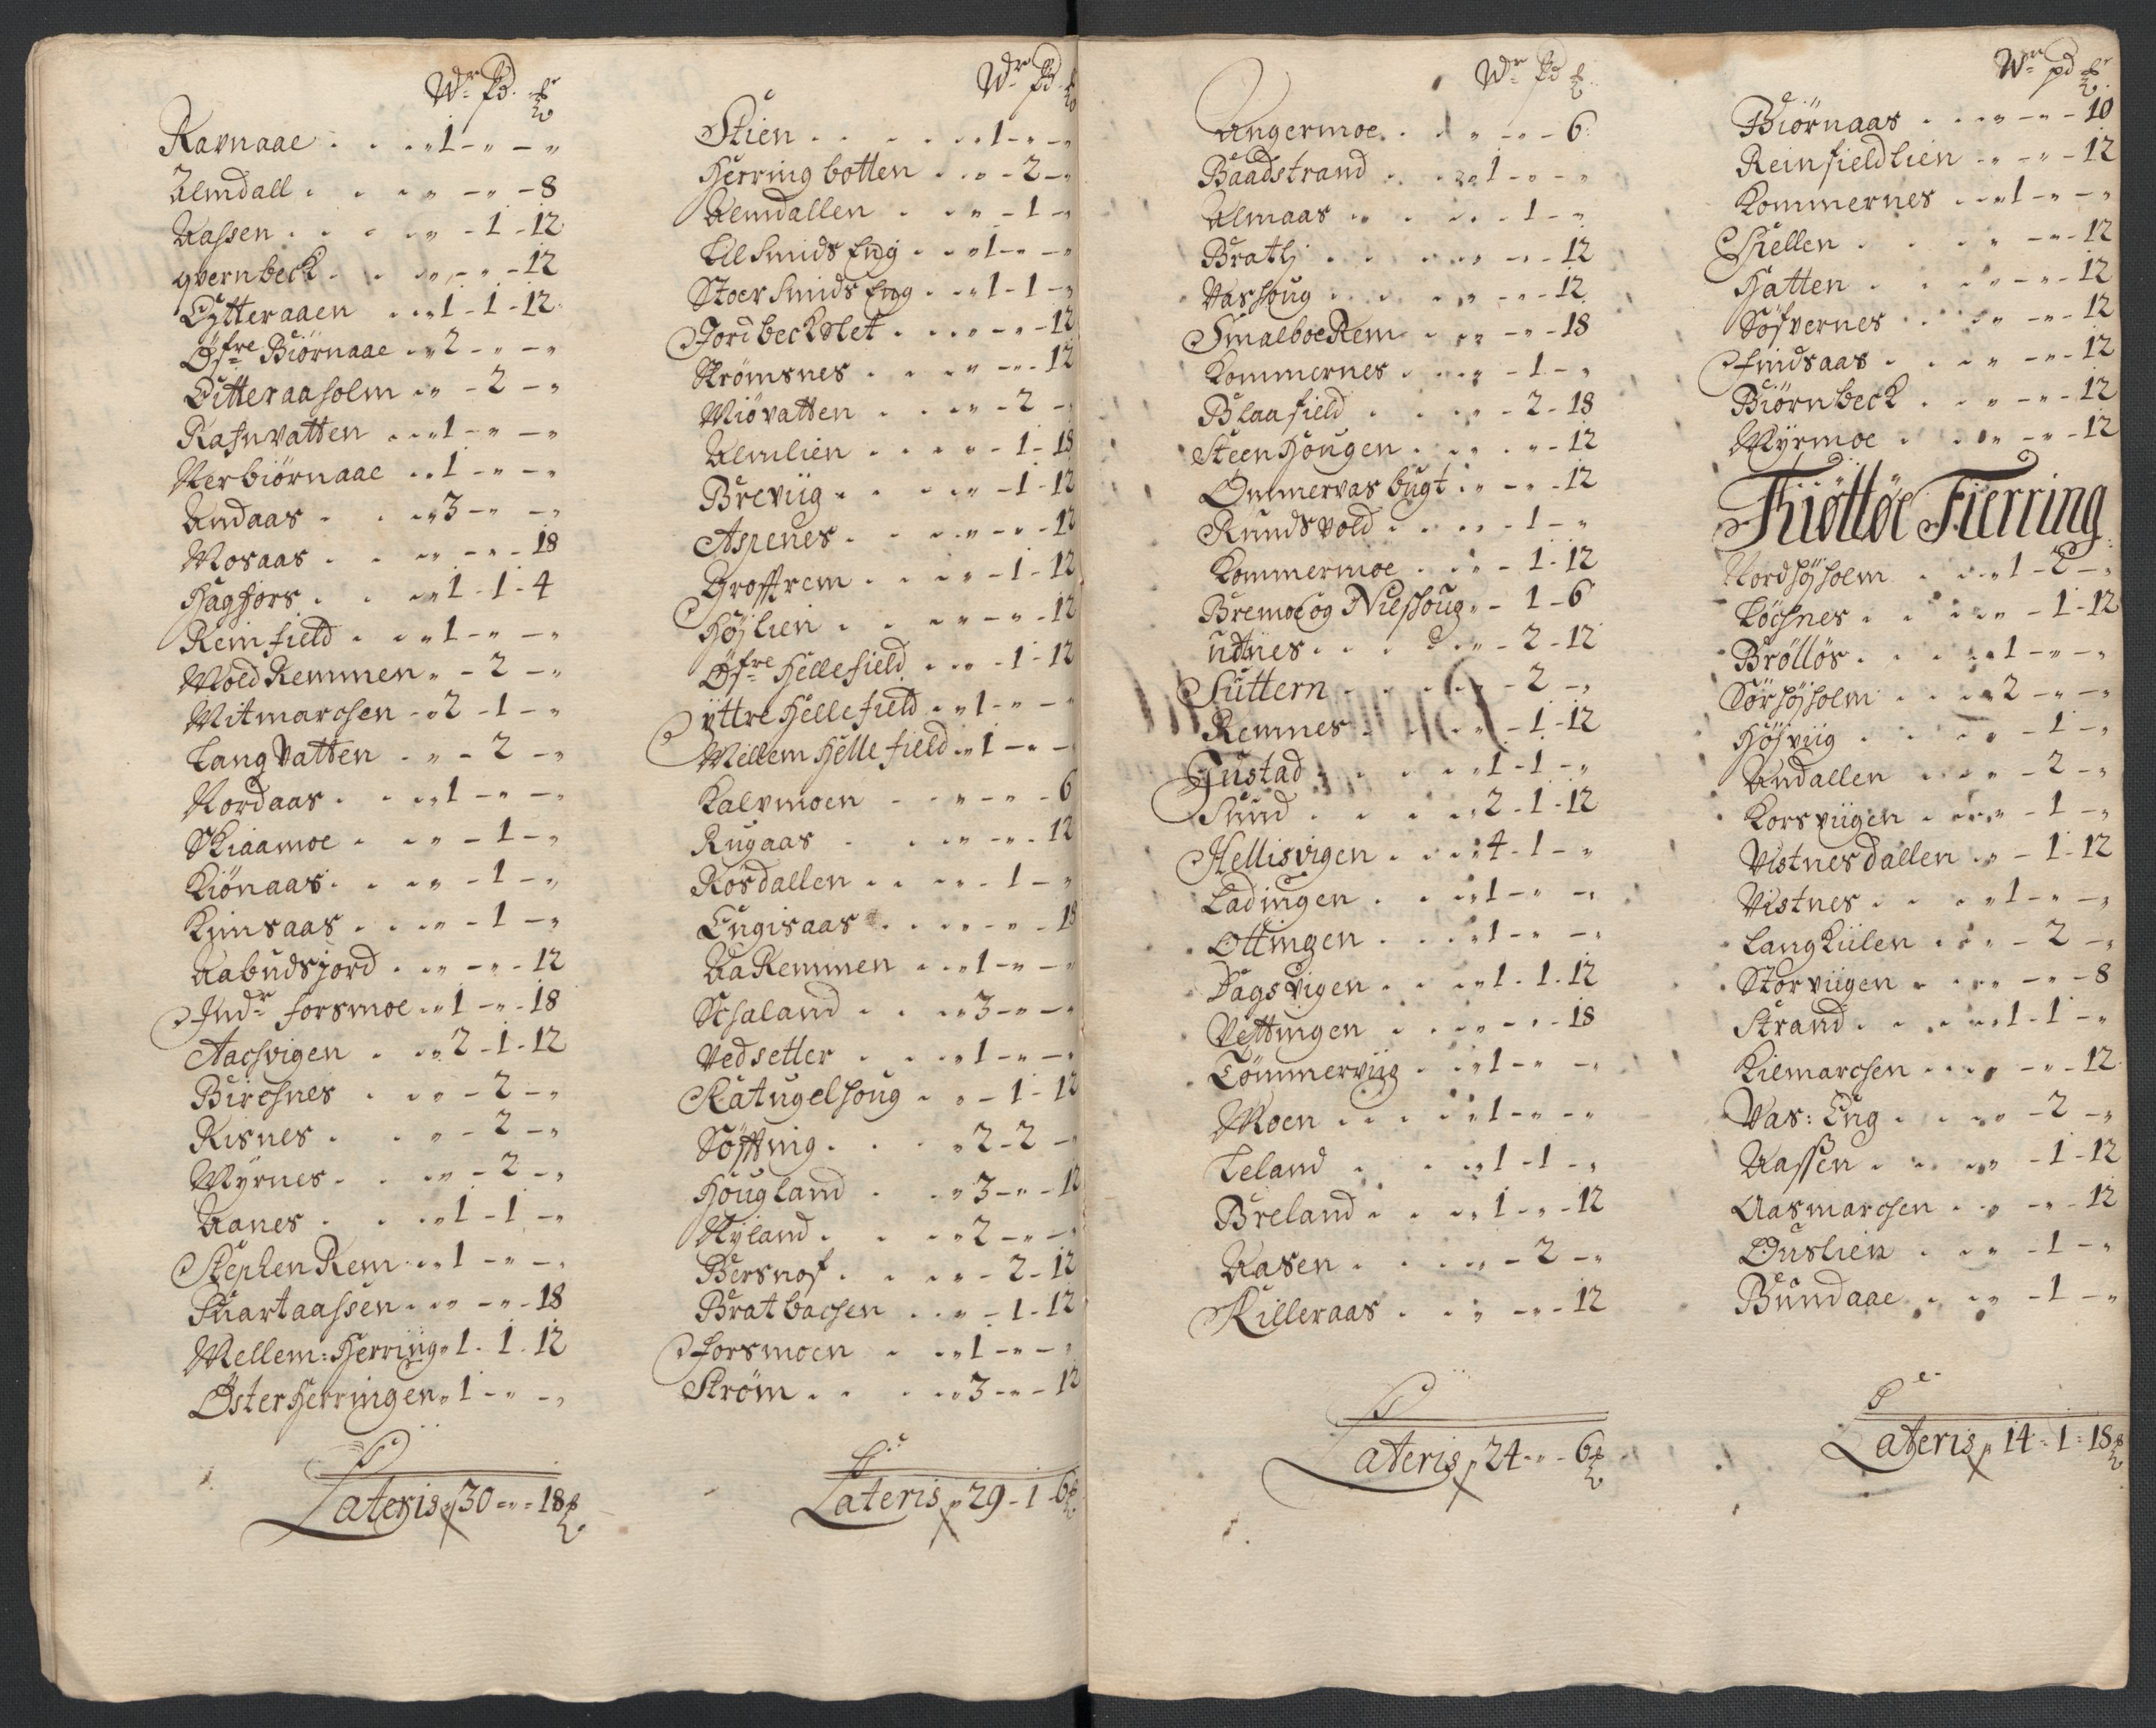 Wr Pd
Ravnaae . . . „ 1 - „ - „
Almdall . . . „ - „ - 8
Aassen . . . „ - 1 - 12
qvernbeck . . . „ - „ - 12
Ytteraaen . . „ 1 - 1 - 12
Øfre Biørnaae . . „ 2 - „ - „
Ditteraaholm . „ - 2 - „
Rafnvatten . . „ 1 - „ - „
Nerbiørnaae . . 1 - „ - „
Andaas . . . „ 3 - „ - „
Mosaas . . . „ - „ - 18
Hagfors . . . „ 1 - 1 - 4
Reinfield . . . „ 1 - „ - „
Moldremmen . „ - 2 - „
Mitmarchen - „ 2 - 1 - „
Langvatten . . „ - 2 - „
Nordaas . . . „ 1 - „ - „
Skiaamoe . . . „ - 1 - „
Kiønaas . . . „ - 1 - „
Kinsaas . . . „ - 1 - „
Aabudsjord . . „ - „ - 12
Indr forsmoe . . „ 1 - „ - 18
Aachvigen . . „ 2 - 1 - 12
Birchnes . . „ - 2 - „
Risnes . . . „ - 2 - „
Myrnes . . . „ - 2 - „
Aanes . . . „ 1 - 1 - „
Stephen Rem . . „ 1 - „ - „
Suartaassen . . „ - „ - 18
Mellem: Herring „ 1 . 1 . 12
Østerherringen „ 1 - „ - „
Lateris p 30 = „ = 18
Wr Pd
Stien . . . . „ 1 - „ - „
Herringbotten . . „ - 2 - „
Almdallen . . „ - 1 - „
Lilsmids Eng . . „ 1 - „ - „
Stoer Smids Eng . . „ 1 - 1 - „
Jordbeckslet . . . „ - „ - 12
Strømsnes . . . „ - „ - 12
Miövatten . . . „ - 2 -
Almlien . . . „ - 1 - 18
Breviig . . . „ - 1 - 12
Aspenes . . . „ - „ - 12
Groftrem . . . „ - 1 - 12
Højlien . . . „ - „ - 12
Øfre Hellefield . . „ - 1 - 12
yttre Hellefield . . „ 1 - „ -
Mellem Helle field . „ 1 - „ -
Kalvmoen . . „ - „ - 6
Rugaas . . . „ - „ - 12
Rosdallen . . . „ - 1 - „
Engisaas . . . „ - „ - 18
Aaremmen . . „ 1 - „ - „
Schaland . . . „ 3 - „ - „
Vedsetter . . . „ 1 - „ - „
Katugelhoug . . „ - 1 - 12
Søfting . . . „ 2 - 2 -
Hougland . . . „ 3 - „ - 12
Nyland . . . „ 2 - „ -
Bersnof . . . „ - 2 - 12
Bratbachen . . „ - 1 - 12
Forsmoen . . „ 1 - „ - „
Strøm . . . „ 3 - „ - 12
Lateris p 29 - 1 - 6
Wr Pd
Angermoe . . . „ - „ - 6
Baadstrand . . . „ 1 - „ - „
Almaas . . . „ - 1 - „
Bratlj . . . „ - „ - 12
Vashoug . . . „ - „ - 12
Smalboe Rem . . „ - „ - 18
Kommernes . . . „ - 1 - „
Blaafield . . . „ - 2 - 18
Steen Hougen . . „ - „ - 12
Ommervas bugt . „ - „ - 12
Rundsvold . . . „ - 1 - „
Kommermoe . . „ - 1 - 12
Bremoe og Nilshoug „ - 1 - 6
Udnes . . . „ - 2 - 12
Suttern . . . „ - 2 - „
Remnes . . . „ - 1 - 12
Gustad . . . „ 1 - 1 - „
Sund . . . „ 2 - 1 - 12
Hellisvigen . . . „ 4 - 1 - „
Ladingen . . . „ 1 - „ - „
Ottingen . . . „ 1 - „ - „
Dagsvigen . . . „ 1 . 1 . 12
Vettingen . . . „ - „ - 18
Tömmerviig . . „ 1 - „ - „
Moen . . . . „ 1 - „ - „
Leland . . . „ 1 - 1 - „
Breland . . . „ 1 - „ - 12
Aasen . . . „ - 2 - „
Killeraas . . . „ - „ - 12
Lateris p 24 - „ - 6
Wr pd
Biörnaas . . . „ - „ - 10
Reinfieldlien . „ - „ - 12
Kommernes . . „ 1 - „ - „
Skellen . . . „ - „ - 12
Hatten . . . „ - „ - 12
Söfvernes . . . „ - „ - 12
Findsaas . . . „ - „ - 12
Biörnbeck . . . „ - „ - 12
Myrmoe . . . „ - „ - 12
Tiøttøe Fierring
Nordhøjholm . . . „ 1 - 2 - „
Løchnes . . . „ - 1 - 12
Brølløs . . . „ 1 - „ - „
Sørhøjholm . . . „ 2 - „ - „
Højviig . . . „ - 1 - „
Andallen . . . „ - 2 - „
Korsviigen . . . „ - 1 - „
Vistnesdallen . „ - 1 - 12
Vistnes . . . „ 1 - „ - „
Langkiilen . . . „ - 2 - „
Storviigen . . . „ - „ - 8
Strand . . . „ 1 - 1 - „
Kilmarchen . . . „ - „ - 12
Vas: Eng . . . „ - 2 - „
Aassen . . . „ - 1 - 12
Aasmarchen . . „ - „ - 12
Ouslien . . . „ - 1 - „
Bundaae . . . „ - 1 - „
Lateris p 14 = 1 = 18